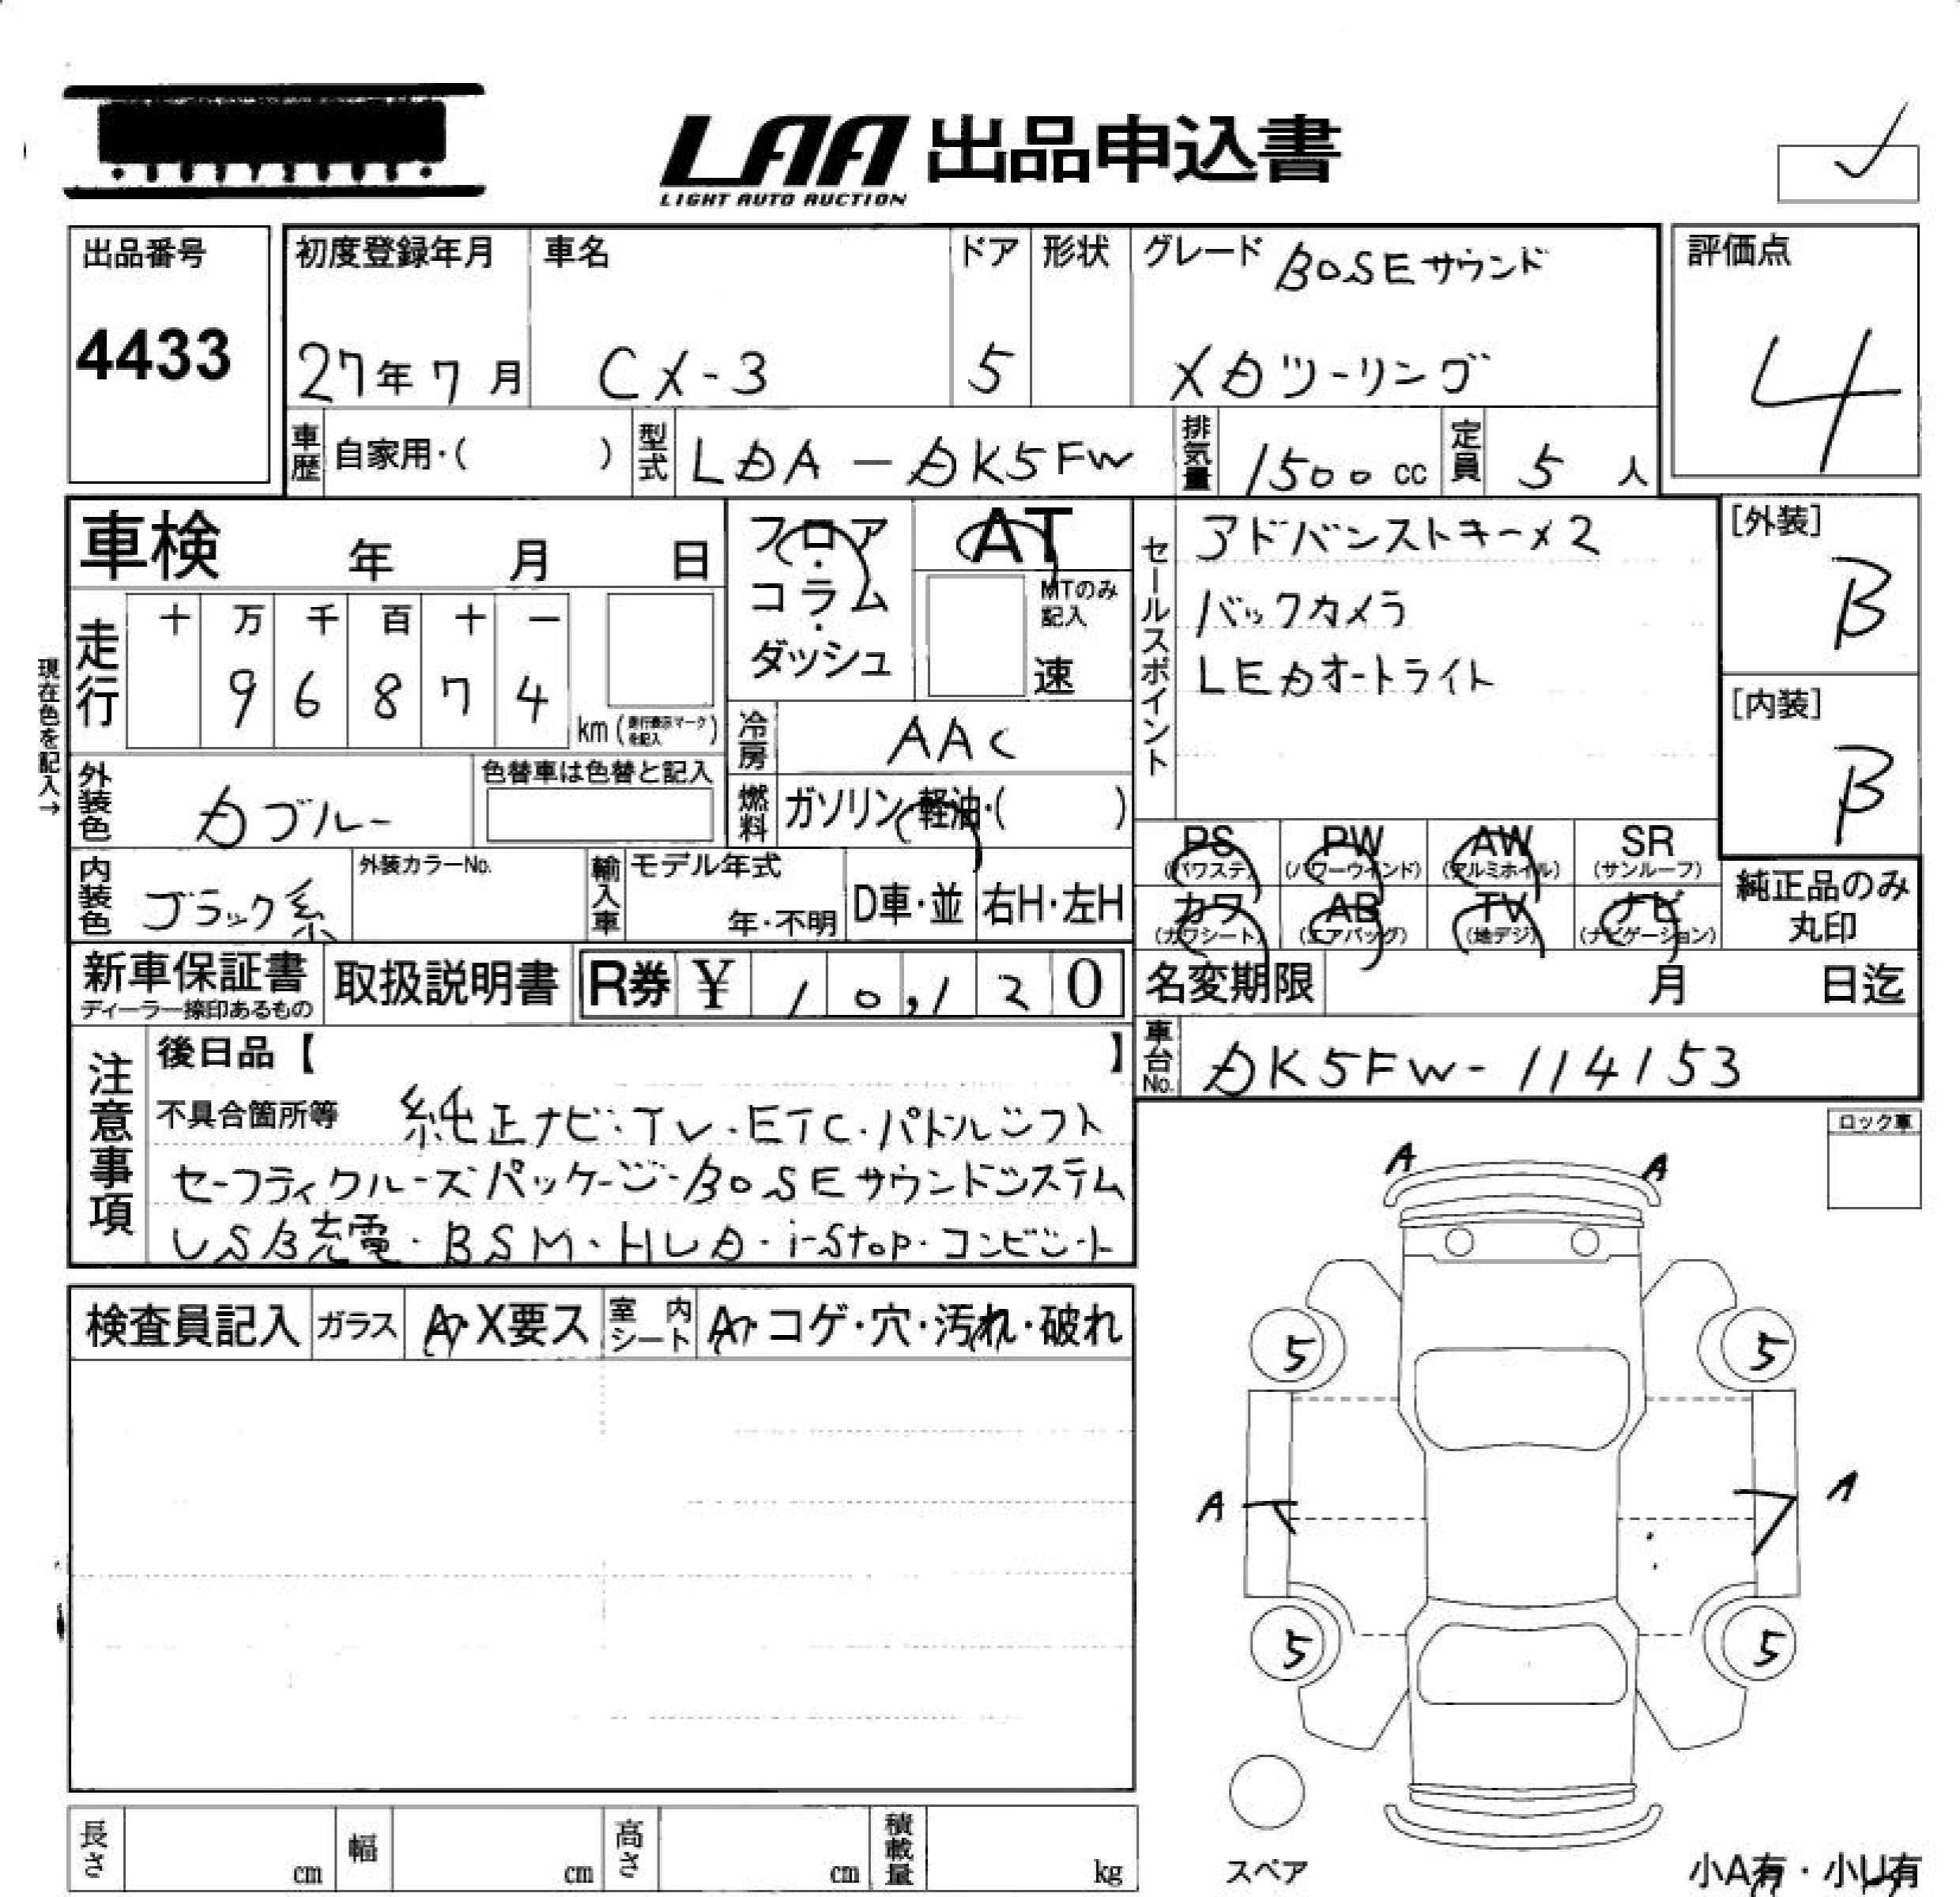 LAA 出品申込書
LIGHT AUTO AUCTION
出品番号
4433
初度登録年月
27年7月
車名
CX-3
ドア
5
形状
グレード BOSEサウンド
XDツーリング
評価点
4
車歴 自家用・( )
型式 LDA-DK5FW
排気量 1500cc
定員 5人
車検 年 月 日
フロア・コラム・ダッシュ
AT
MTのみ記入
速
セールスポイント
アドバンストキー×2
バックカメラ
LEDオートライト
[外装]
B
[内装]
B
現在色を記入→
走行
十 万 千 百 十 一
9 6 8 7 4
km (走行表示マークを記入)
冷房 AAC
燃料 ガソリン・軽油・( )
外装色 Dブルー
色替車は色替と記入
内装色 ブラック系
外装カラーNo.
輸入車 モデル年式
年・不明
D車・並
右H・左H
PS (パワステ)
PW (パワーウインド)
AW (アルミホイル)
SR (サンルーフ)
カワ (カワシート)
AB (エアバッグ)
TV (地デジ)
ナビ (ナビゲーション)
純正品のみ丸印
新車保証書
ディーラー捺印あるもの
取扱説明書
R券 ¥ 10,120
名変期限 月 日迄
車台No. DK5FW-114153
注意事項
後日品【 】
不具合箇所等 純正ナビ・TV・ETC・パドルシフト
セーフティクルーズパッケージ・BOSEサウンドシステム
USB充電・BSM・HUD・i-Stop・コンビシート
ロック車
検査員記入
ガラス A・X要ス
室内シート A・コゲ・穴・汚れ・破れ
A A
5 5
A A
5 5
スペア
小A有・小U有
長さ cm
幅 cm
高さ cm
積載量 kg